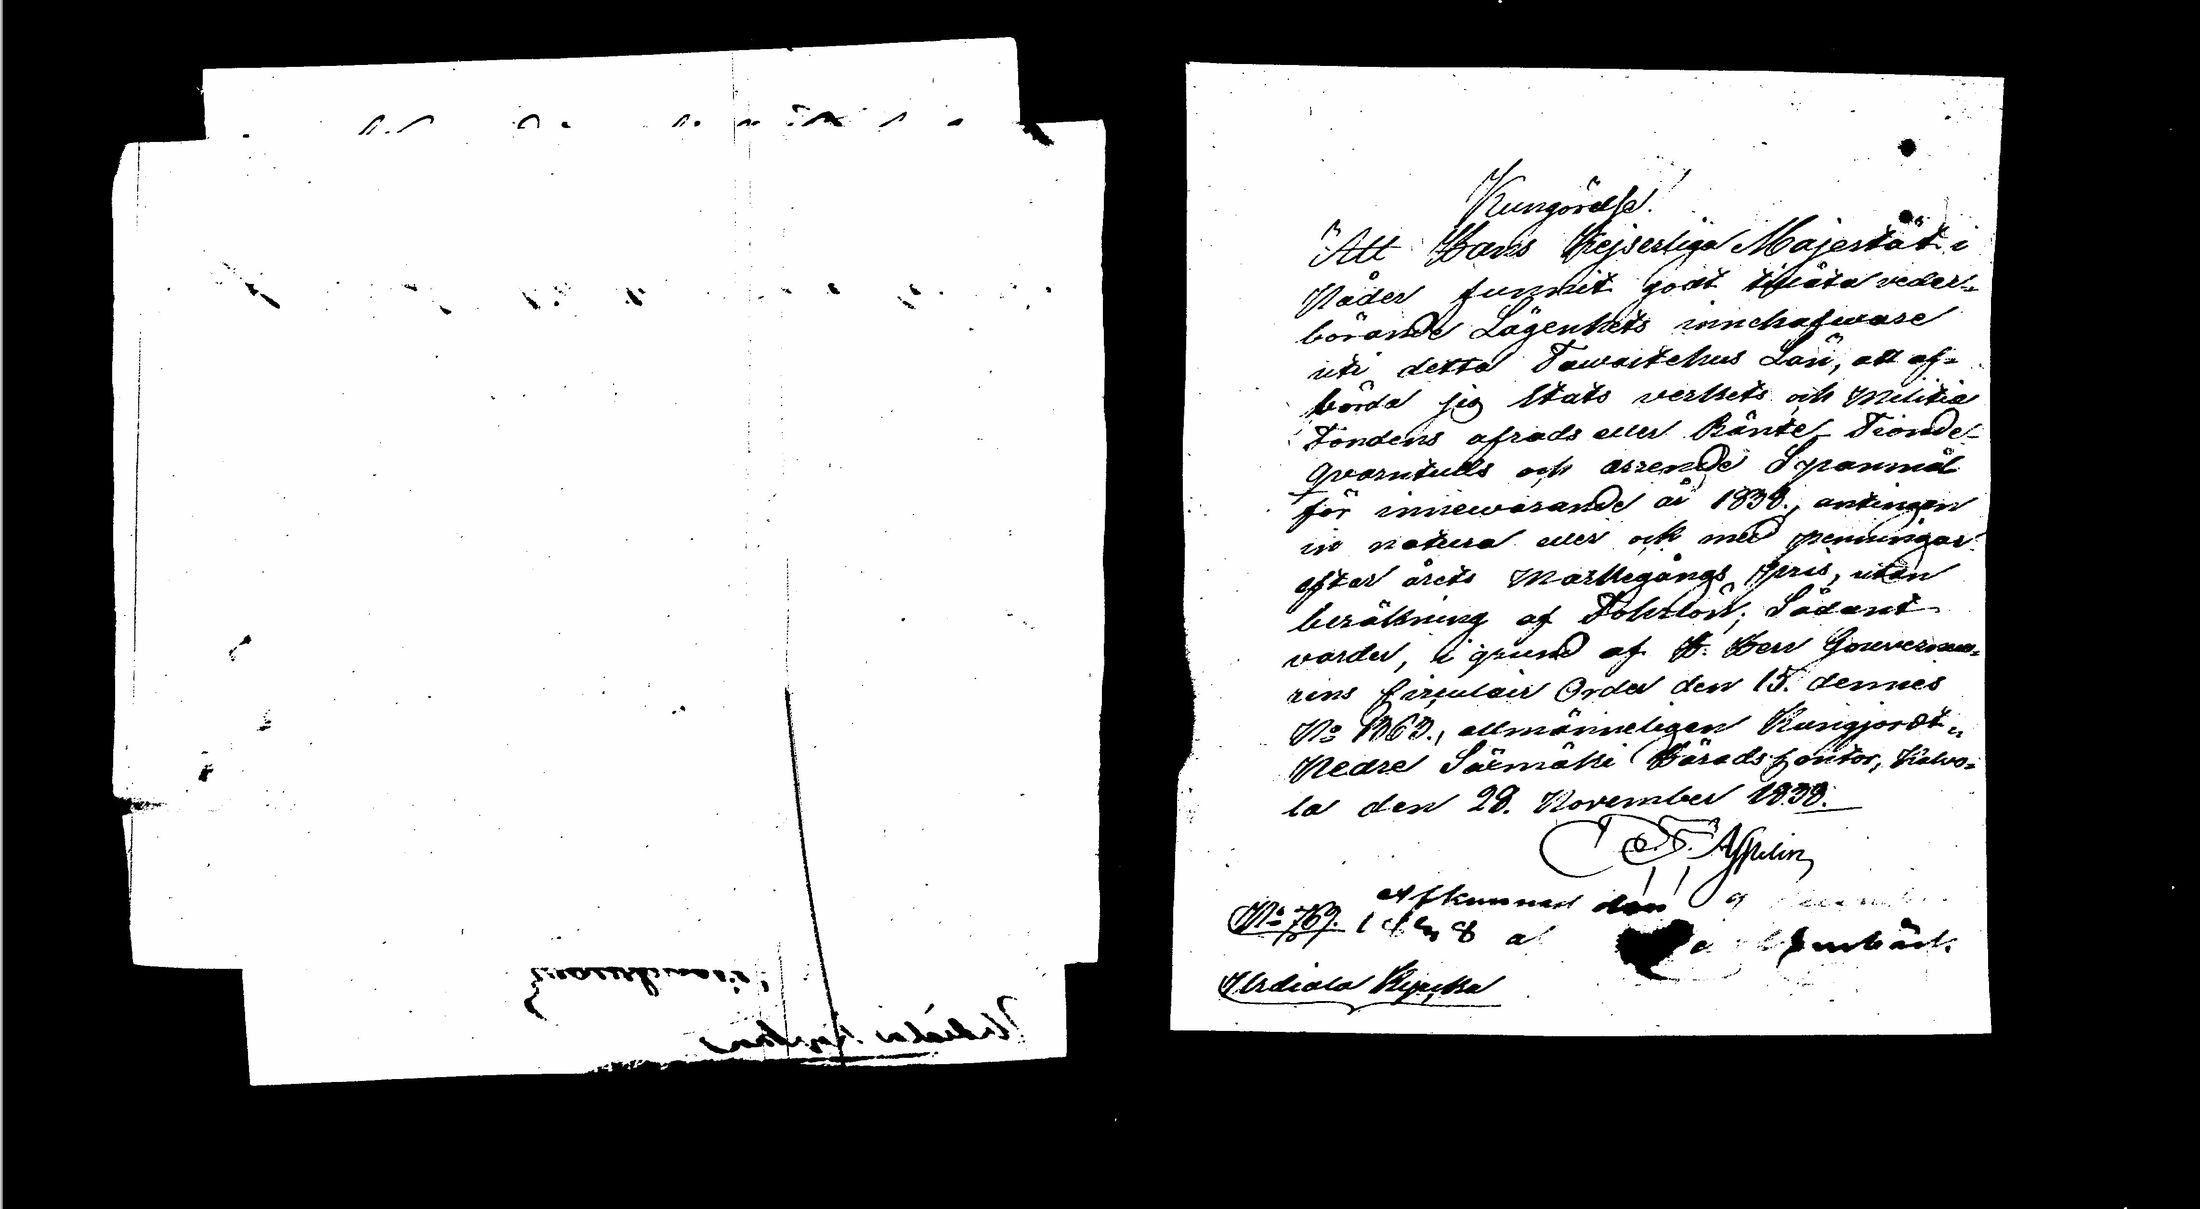 Kungörelse!
Att Hans Kejserliga Majestät i
Nåder funnit godt tillåta veder-
börande Lägenhets innehafware
uti detta Tawastehus Län, att af-
börda sig Stats verkets och Militie
Fondens afrads eller Ränte Tionde-
Qvarntulls och arrende Spanmål
för innewarande år 1838., antingen
in natura eller ock med penningar
efter årets Markegångs Pris, utan
beräkning af Forlön; Sådant
varder, i grund af H. Herr Gouverneu-
rens Circulair Order den 15. dennes
No 1363., allmänneligen Kungjordt.,
Nedre Sääxmäki Härads Contor, Kalvo-
la den 28. November 1838.
Asspelin
Afkunnad den 9
No 769. 1838 af
Urdiala Kyrcka
Urdiala Kyrckas